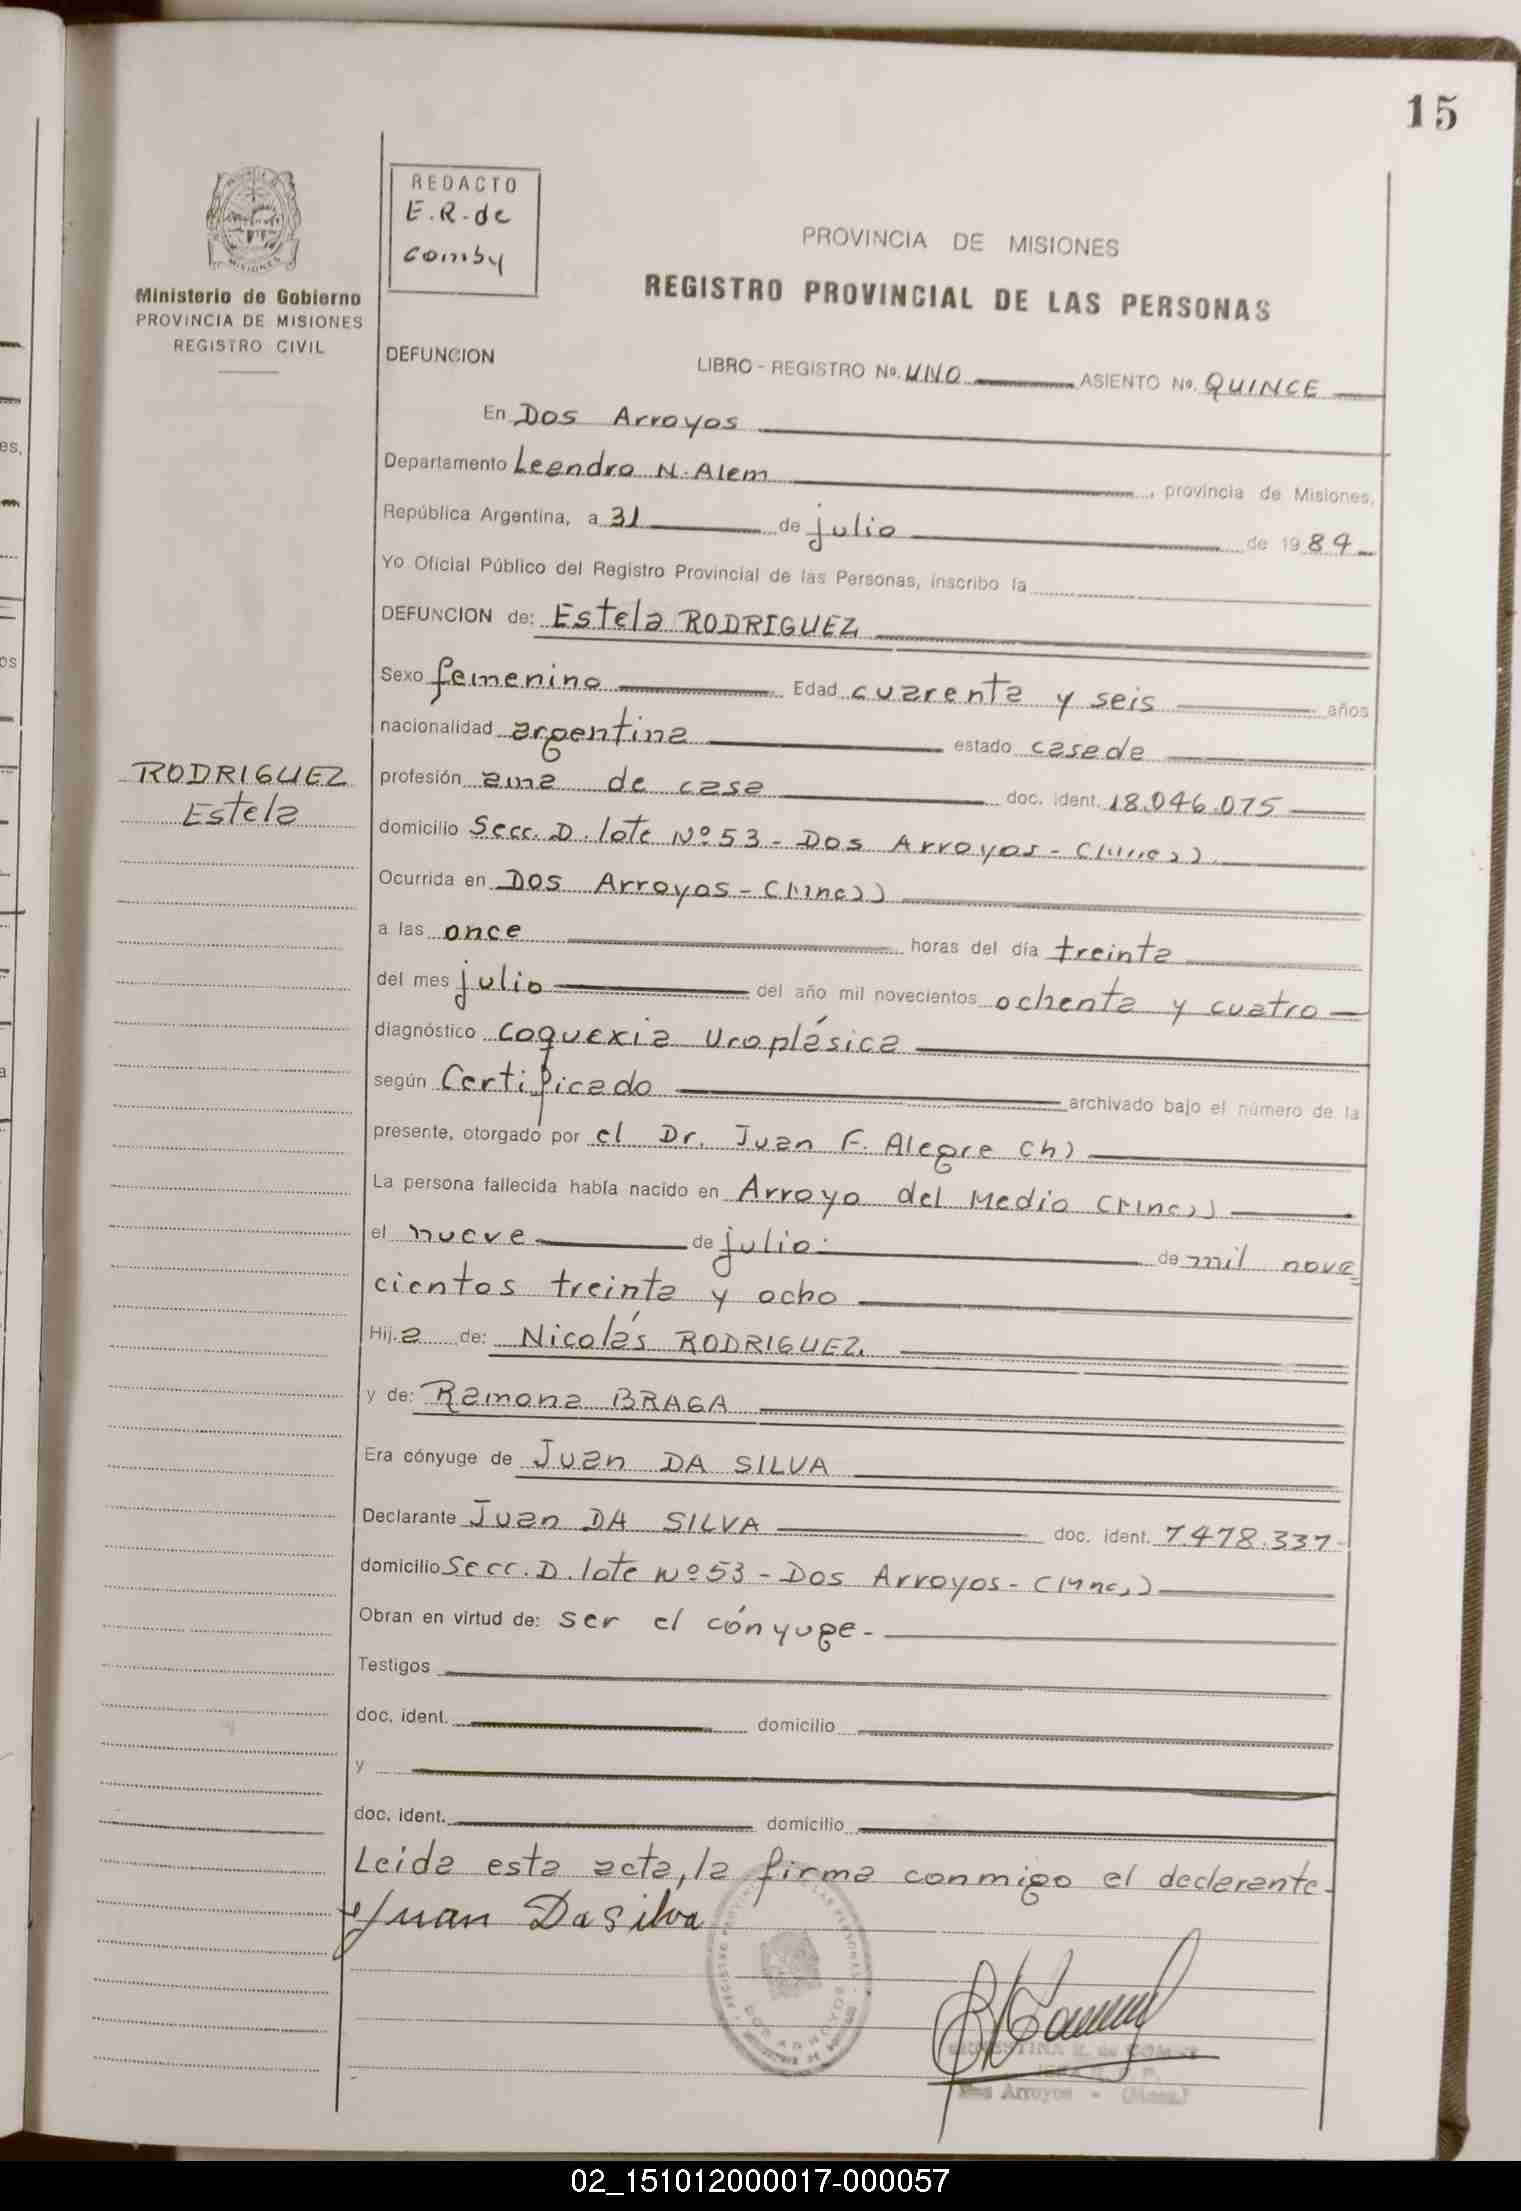 15
REDACTO
E.R. de
Comby
Ministerio de Gobierno
PROVINCIA DE MISIONES
REGISTRO CIVIL
PROVINCIA DE MISIONES
REGISTRO PROVINCIAL DE LAS PERSONAS
DEFUNCION LIBRO - REGISTRO No. UNO ASIENTO No. QUINCE
En Dos Arroyos
Departamento Leandro N. Alem, provincia de Misiones,
República Argentina, a 31 de julio de 1984
Yo Oficial Público del Registro Provincial de las Personas, inscribo la
DEFUNCION de: Estela RODRIGUEZ
Sexo femenino Edad cuarenta y seis años
nacionalidad argentina estado casada
RODRIGUEZ
Estela
profesión ama de casa doc. ident. 18.046.075
domicilio Secc. D. lote Nº 53 - Dos Arroyos - (Mnes)
Ocurrida en Dos Arroyos - (Mnes)
a las once horas del día treinta
del mes julio del año mil novecientos ochenta y cuatro
diagnóstico Coquexia Uroplásica
según Certificado archivado bajo el número de la
presente, otorgado por el Dr. Juan F. Alegre (h)
La persona fallecida había nacido en Arroyo del Medio (Mnes)
el nueve de julio de mil nove
cientos treinta y ocho
Hija de: Nicolás RODRIGUEZ.
y de: Ramona BRAGA
Era cónyuge de Juan DA SILVA
Declarante Juan DA SILVA doc. ident. 7.478.337
domicilio Secc. D. lote Nº 53 - Dos Arroyos - (Mnes)
Obran en virtud de: ser el cónyuge -
Testigos
doc. ident. domicilio
y
doc. ident. domicilio
Leida esta acta, la firma conmigo el declarante.
Juan Da Silva
Dos Arroyos - (Mnes.)
02_151012000017-000057